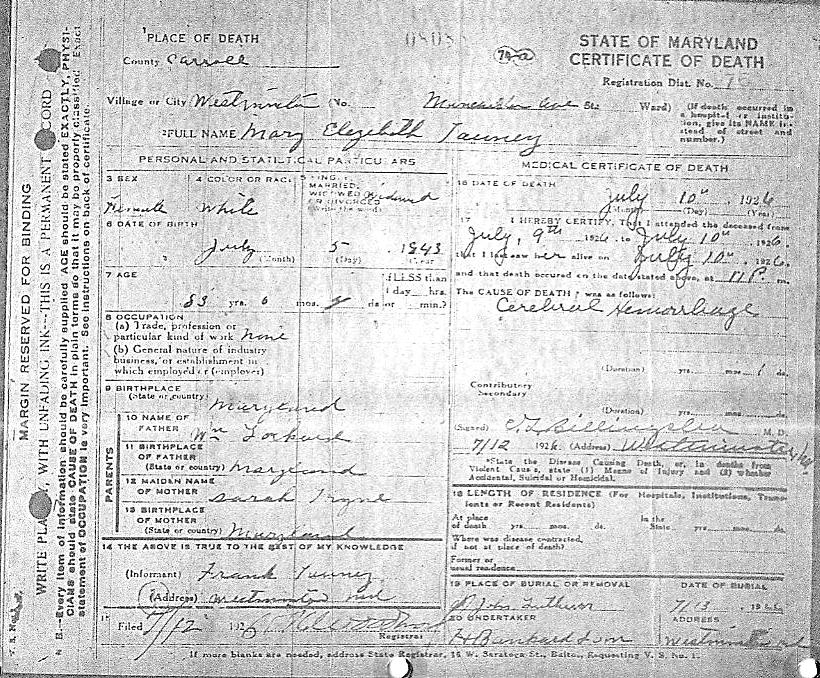 MARGIN RESERVED FOR BINDING
WRITE PLAINLY, WITH UNFADING INK--THIS IS A PERMANENT RECORD
N. B.--Every item of information should be carefully supplied AGE should be stated EXACTLY, PHYSI-
CIANS should state CAUSE OF DEATH in plain terms so that it may be properly classified. Exact
statement of OCCUPATION is very important. See instructions on back of certificate.
PLACE OF DEATH
County Carroll
STATE OF MARYLAND
CERTIFICATE OF DEATH
Registration Dist. No.
Village or City Westminster (No. St. Ward)
(If death occurred in
a hospital or institu-
tion, give its NAME in-
stead of street and
number.)
2 FULL NAME Mary Elizabeth Tawney
PERSONAL AND STATISTICAL PARTICULARS
3 SEX
Female
4 COLOR OR RACE
White
5 SINGLE,
MARRIED,
WIDOWED
OR DIVORCED
(Write the word)
Widowed
6 DATE OF BIRTH
July 5 1843
(Month) (Day) (Year
7 AGE
83 yrs. 0 mos. ds
If LESS than
1 day hrs.
or min.?
8 OCCUPATION
(a) Trade, profession or
particular kind of work none
(b) General nature of industry
business, or establishment in
which employed or (employer)
9 BIRTHPLACE
(State or country)
Maryland
PARENTS
10 NAME OF
FATHER
Wm Lockard
11 BIRTHPLACE
OF FATHER
(State or country) Maryland
12 MAIDEN NAME
OF MOTHER
Sarah
13 BIRTHPLACE
OF MOTHER
(State or country) Maryland
14 THE ABOVE IS TRUE TO THE BEST OF MY KNOWLEDGE
(Informant) Frank Tawney
(Address) Westminster Md
15
Filed 7/12 1926
Registrar
MEDICAL CERTIFICATE OF DEATH
16 DATE OF DEATH
July 10" 1926
(Month) (Day) (Year)
17 I HEREBY CERTIFY, That I attended the deceased from
July, 9th 1926 to July 10" 1926
that I last saw her alive on July 10" 1926.
and that death occured on the date stated above, at 11 P. m.
The CAUSE OF DEATH * was as follows:
Cerebral Hemorrhage
(Duration) yrs. mos. 1 ds.
Contributory
Secondary
(Duration) yrs. mos. ds.
(Signed) C. L. Billingslea M. D.
7/12 1926. (Address) Westminster, Md
*State the Disease Causing Death, or, in deaths from
Violent Causes, state (1) Means of Injury and (2) whether
Accidental, Suicidal or Homicidal.
18 LENGTH OF RESIDENCE (For Hospitals, Institutions, Trans-
ients or Recent Residents)
At place
of death yrs. mos. ds.
In the
State yrs. mos. ds.
Where was disease contracted,
if not at place of death?
Former or
usual residence
19 PLACE OF BURIAL OR REMOVAL
St Johns Lutheran
DATE OF BURIAL
7/13 1926
20 UNDERTAKER
H Bankard & Son
ADDRESS
Westminster Md
If more blanks are needed, address State Registrar, 16 W. Saratoga St., Balto., Requesting V. S. No. 1.